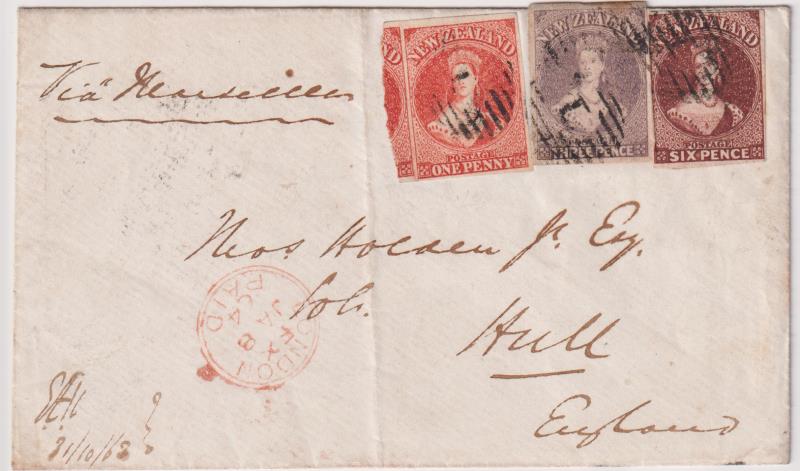 Via Marseilles
NEW ZEALAND
POSTAGE
ONE PENNY
NEW ZEALAND
THREE PENCE
NEW ZEALAND
POSTAGE
SIX PENCE
Thos Holden Jr. Esq.
Solr.
Hull
England
LONDON
PAID
JA 8
64
31/10/63